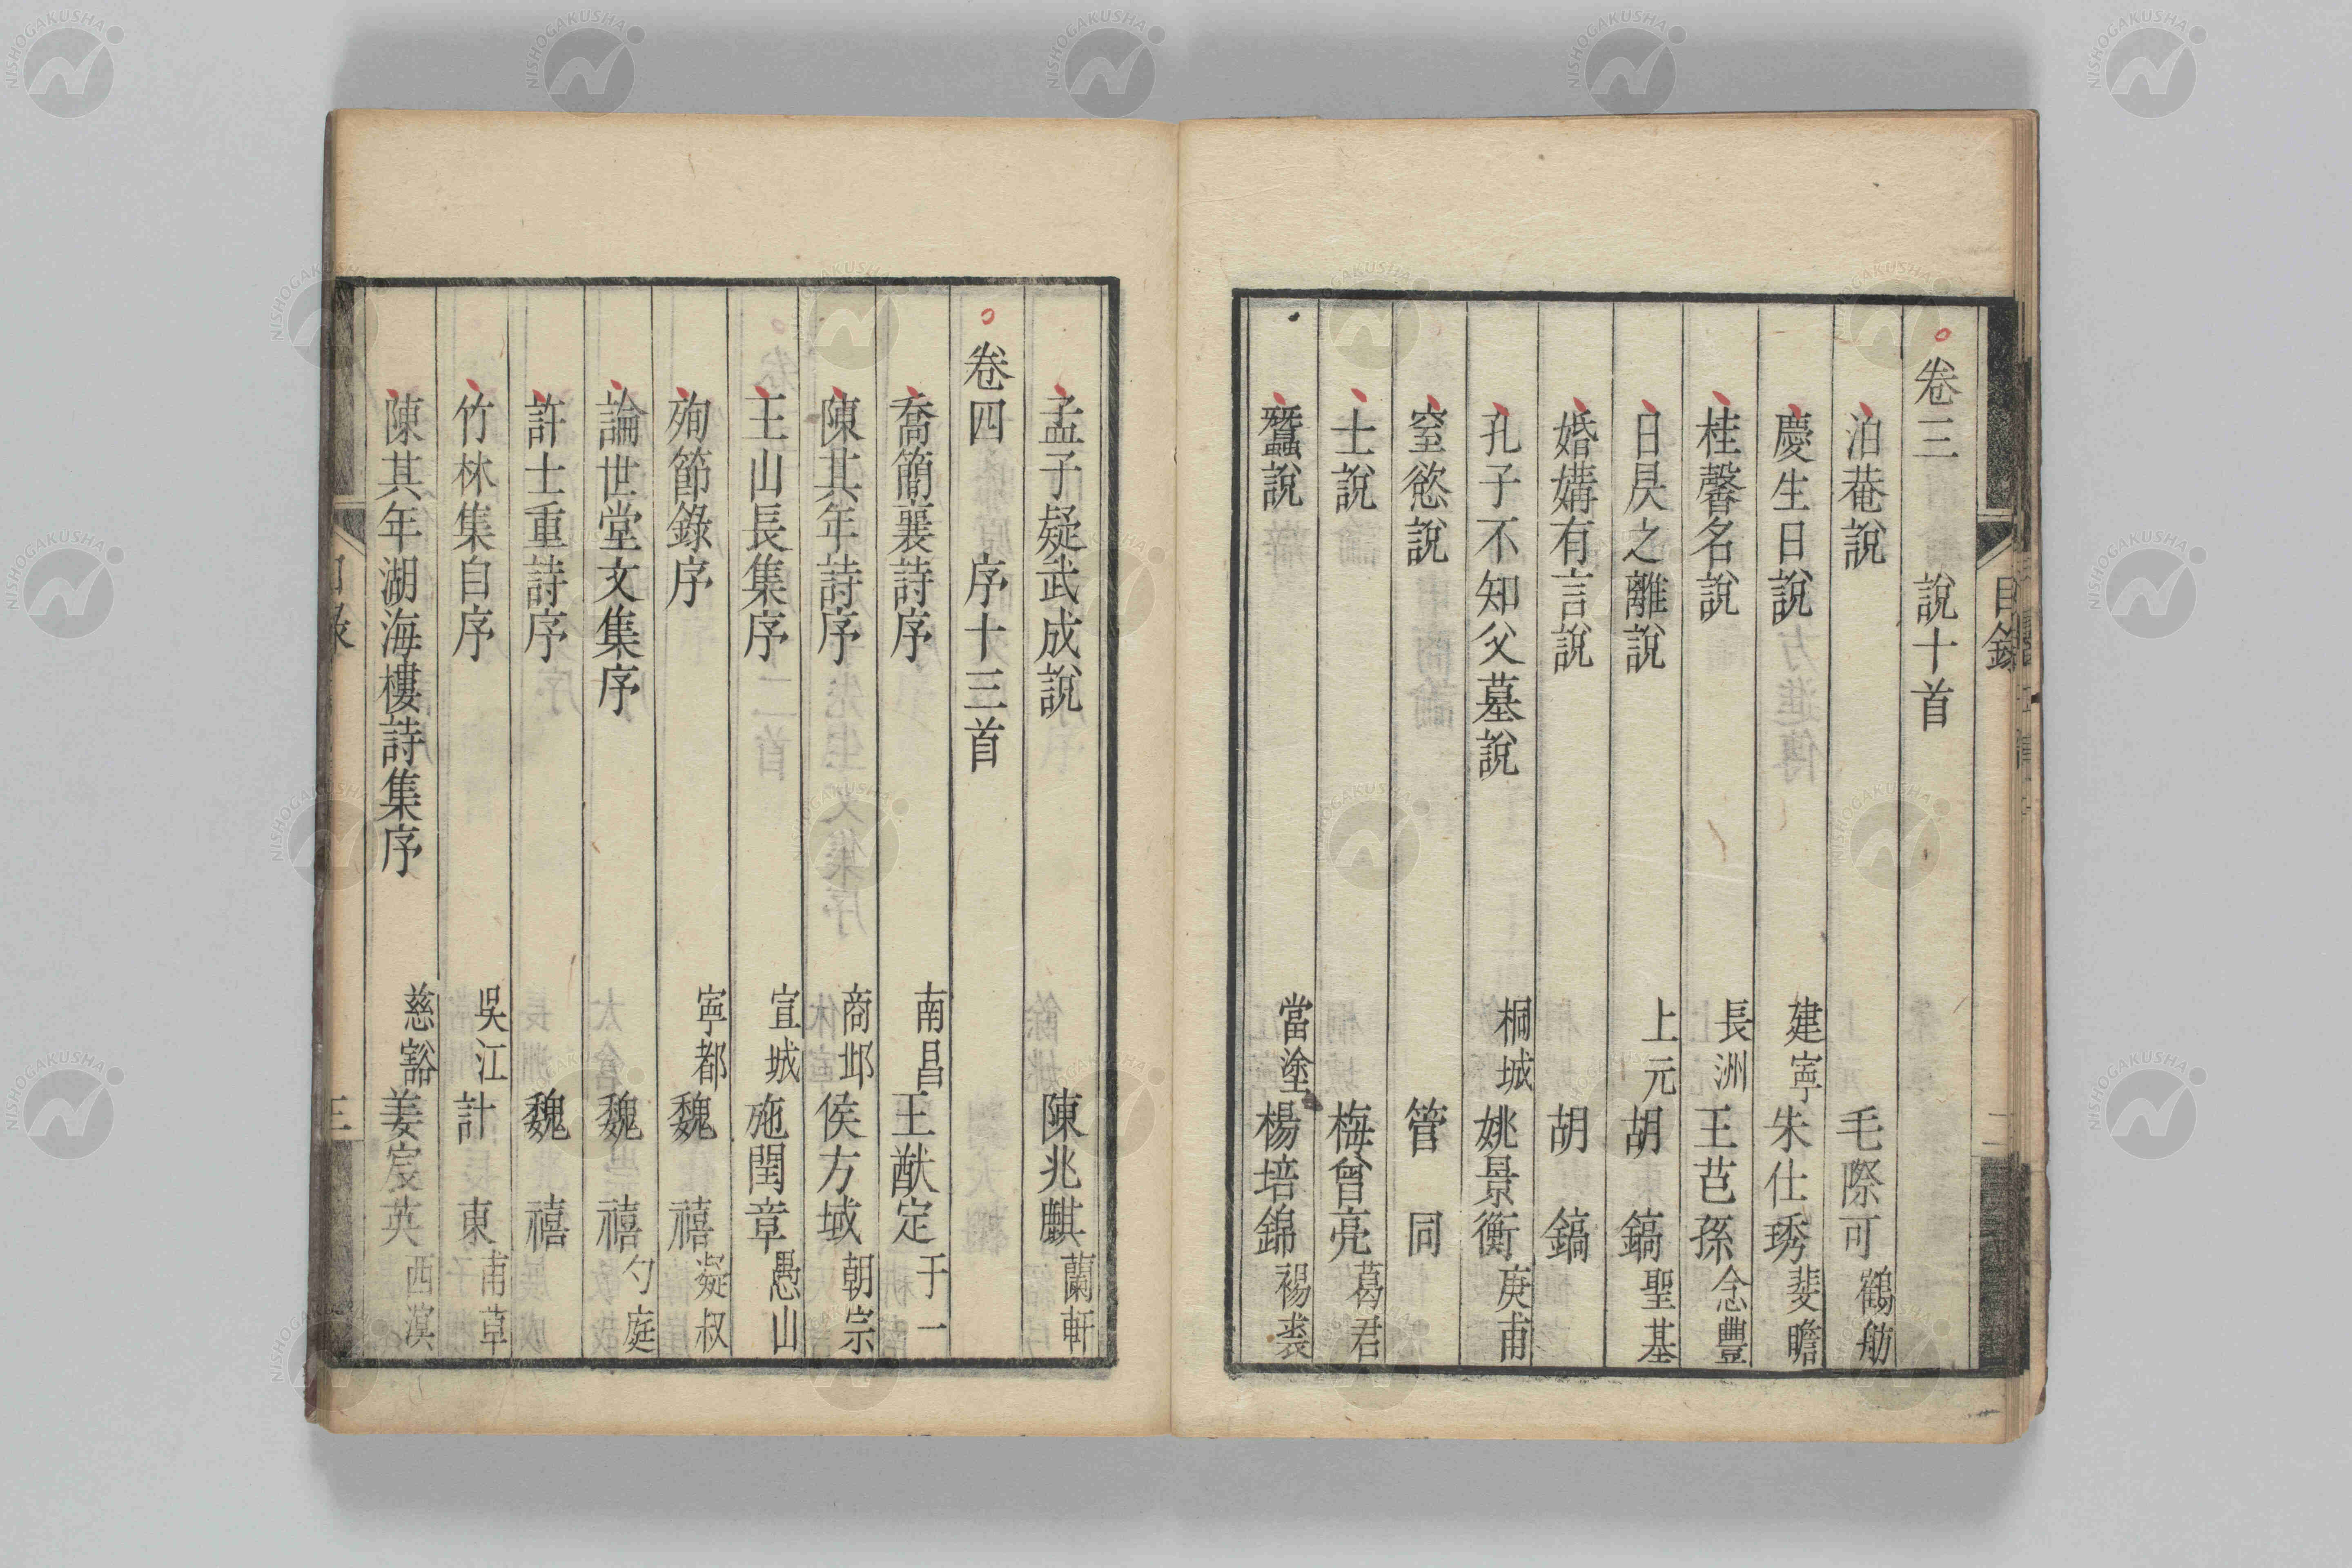 目錄
卷三 說十首
泊菴說 毛際可 鶴舫
慶生日說 建寧 朱仕琇 斐瞻
桂馨名說 長洲 王芑孫 念豐
日昃之離說 上元 胡鎬 聖基
婚媾有言說 胡鎬
孔子不知父墓說 桐城 姚景衡 庚甫
窒慾說 管同
士說 梅曾亮 葛君
蠶說 當塗 楊培錦 裼裘
孟子疑武成說 陳兆麒 蘭軒
卷四 序十三首
喬簡襄詩序 南昌 王猷定 于一
陳其年詩序 商邱 侯方域 朝宗
王山長集序 宣城 施閏章 愚山
殉節錄序 寧都 魏禧 凝叔
論世堂文集序 魏禧 勺庭
許士重詩序 魏禧
竹林集自序 吳江 計東 甫草
陳其年湖海樓詩集序 慈谿 姜宸英 西溟
目錄 三
NISHOGAKUSHA